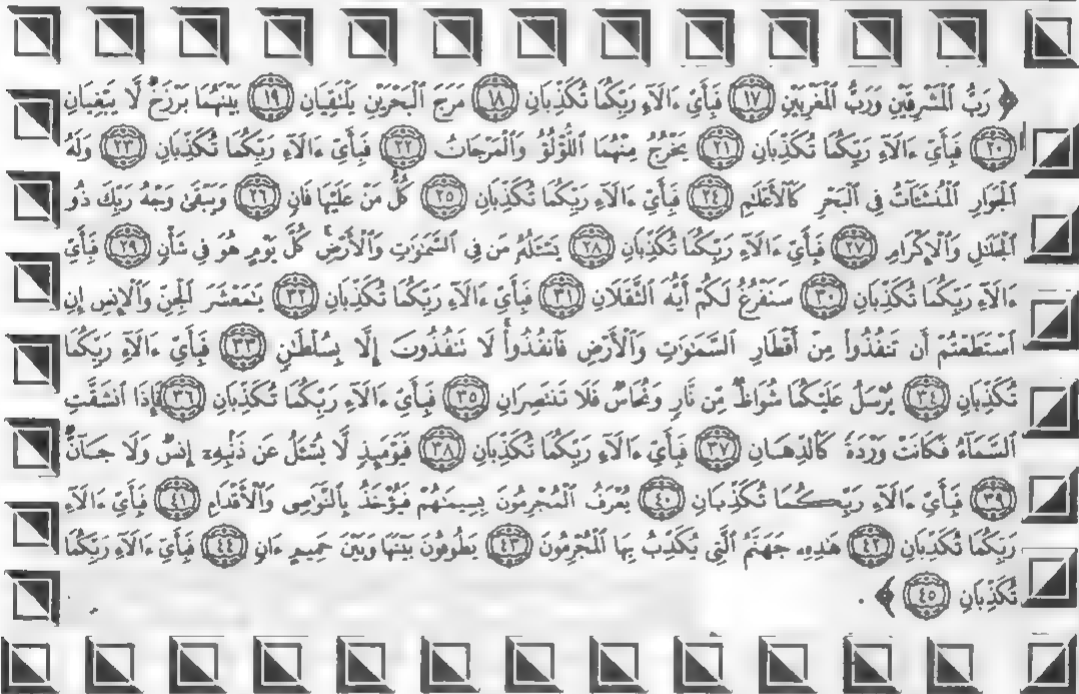 ﴿ رَبُّ ٱلْمَشْرِقَيْنِ وَرَبُّ ٱلْمَغْرِبَيْنِ ١٧ فَبِأَيِّ ءَالَآءِ رَبِّكُمَا تُكَذِّبَانِ ١٨ مَرَجَ ٱلْبَحْرَيْنِ يَلْتَقِيَانِ ١٩ بَيْنَهُمَا بَرْزَخٌ لَّا يَبْغِيَانِ
٢٠ فَبِأَيِّ ءَالَآءِ رَبِّكُمَا تُكَذِّبَانِ ٢١ يَخْرُجُ مِنْهُمَا ٱللُّؤْلُؤُ وَٱلْمَرْجَانُ ٢٢ فَبِأَيِّ ءَالَآءِ رَبِّكُمَا تُكَذِّبَانِ ٢٣ وَلَهُ
ٱلْجَوَارِ ٱلْمُنشَـَٔاتُ فِي ٱلْبَحْرِ كَٱلْأَعْلَٰمِ ٢٤ فَبِأَيِّ ءَالَآءِ رَبِّكُمَا تُكَذِّبَانِ ٢٥ كُلُّ مَنْ عَلَيْهَا فَانٍ ٢٦ وَيَبْقَىٰ وَجْهُ رَبِّكَ ذُو
ٱلْجَلَٰلِ وَٱلْإِكْرَامِ ٢٧ فَبِأَيِّ ءَالَآءِ رَبِّكُمَا تُكَذِّبَانِ ٢٨ يَسْـَٔلُهُۥ مَن فِي ٱلسَّمَٰوَٰتِ وَٱلْأَرْضِ كُلَّ يَوْمٍ هُوَ فِي شَأْنٍ ٢٩ فَبِأَيِّ
ءَالَآءِ رَبِّكُمَا تُكَذِّبَانِ ٣٠ سَنَفْرُغُ لَكُمْ أَيُّهَ ٱلثَّقَلَانِ ٣١ فَبِأَيِّ ءَالَآءِ رَبِّكُمَا تُكَذِّبَانِ ٣٢ يَٰمَعْشَرَ ٱلْجِنِّ وَٱلْإِنسِ إِنِ
ٱسْتَطَعْتُمْ أَن تَنفُذُوا۟ مِنْ أَقْطَارِ ٱلسَّمَٰوَٰتِ وَٱلْأَرْضِ فَٱنفُذُوا۟ لَا تَنفُذُونَ إِلَّا بِسُلْطَٰنٍ ٣٣ فَبِأَيِّ ءَالَآءِ رَبِّكُمَا
تُكَذِّبَانِ ٣٤ يُرْسَلُ عَلَيْكُمَا شُوَاظٌ مِّن نَّارٍ وَنُحَاسٌ فَلَا تَنتَصِرَانِ ٣٥ فَبِأَيِّ ءَالَآءِ رَبِّكُمَا تُكَذِّبَانِ ٣٦ فَإِذَا ٱنشَقَّتِ
ٱلسَّمَآءُ فَكَانَتْ وَرْدَةً كَٱلدِّهَانِ ٣٧ فَبِأَيِّ ءَالَآءِ رَبِّكُمَا تُكَذِّبَانِ ٣٨ فَيَوْمَئِذٍ لَّا يُسْـَٔلُ عَن ذَنۢبِهِۦٓ إِنسٌ وَلَا جَآنٌّ
٣٩ فَبِأَيِّ ءَالَآءِ رَبِّكُمَا تُكَذِّبَانِ ٤٠ يُعْرَفُ ٱلْمُجْرِمُونَ بِسِيمَٰهُمْ فَيُؤْخَذُ بِٱلنَّوَٰصِي وَٱلْأَقْدَامِ ٤١ فَبِأَيِّ ءَالَآءِ
رَبِّكُمَا تُكَذِّبَانِ ٤٢ هَٰذِهِۦ جَهَنَّمُ ٱلَّتِي يُكَذِّبُ بِهَا ٱلْمُجْرِمُونَ ٤٣ يَطُوفُونَ بَيْنَهَا وَبَيْنَ حَمِيمٍ ءَانٍ ٤٤ فَبِأَيِّ ءَالَآءِ رَبِّكُمَا
تُكَذِّبَانِ ٤٥ ﴾ .